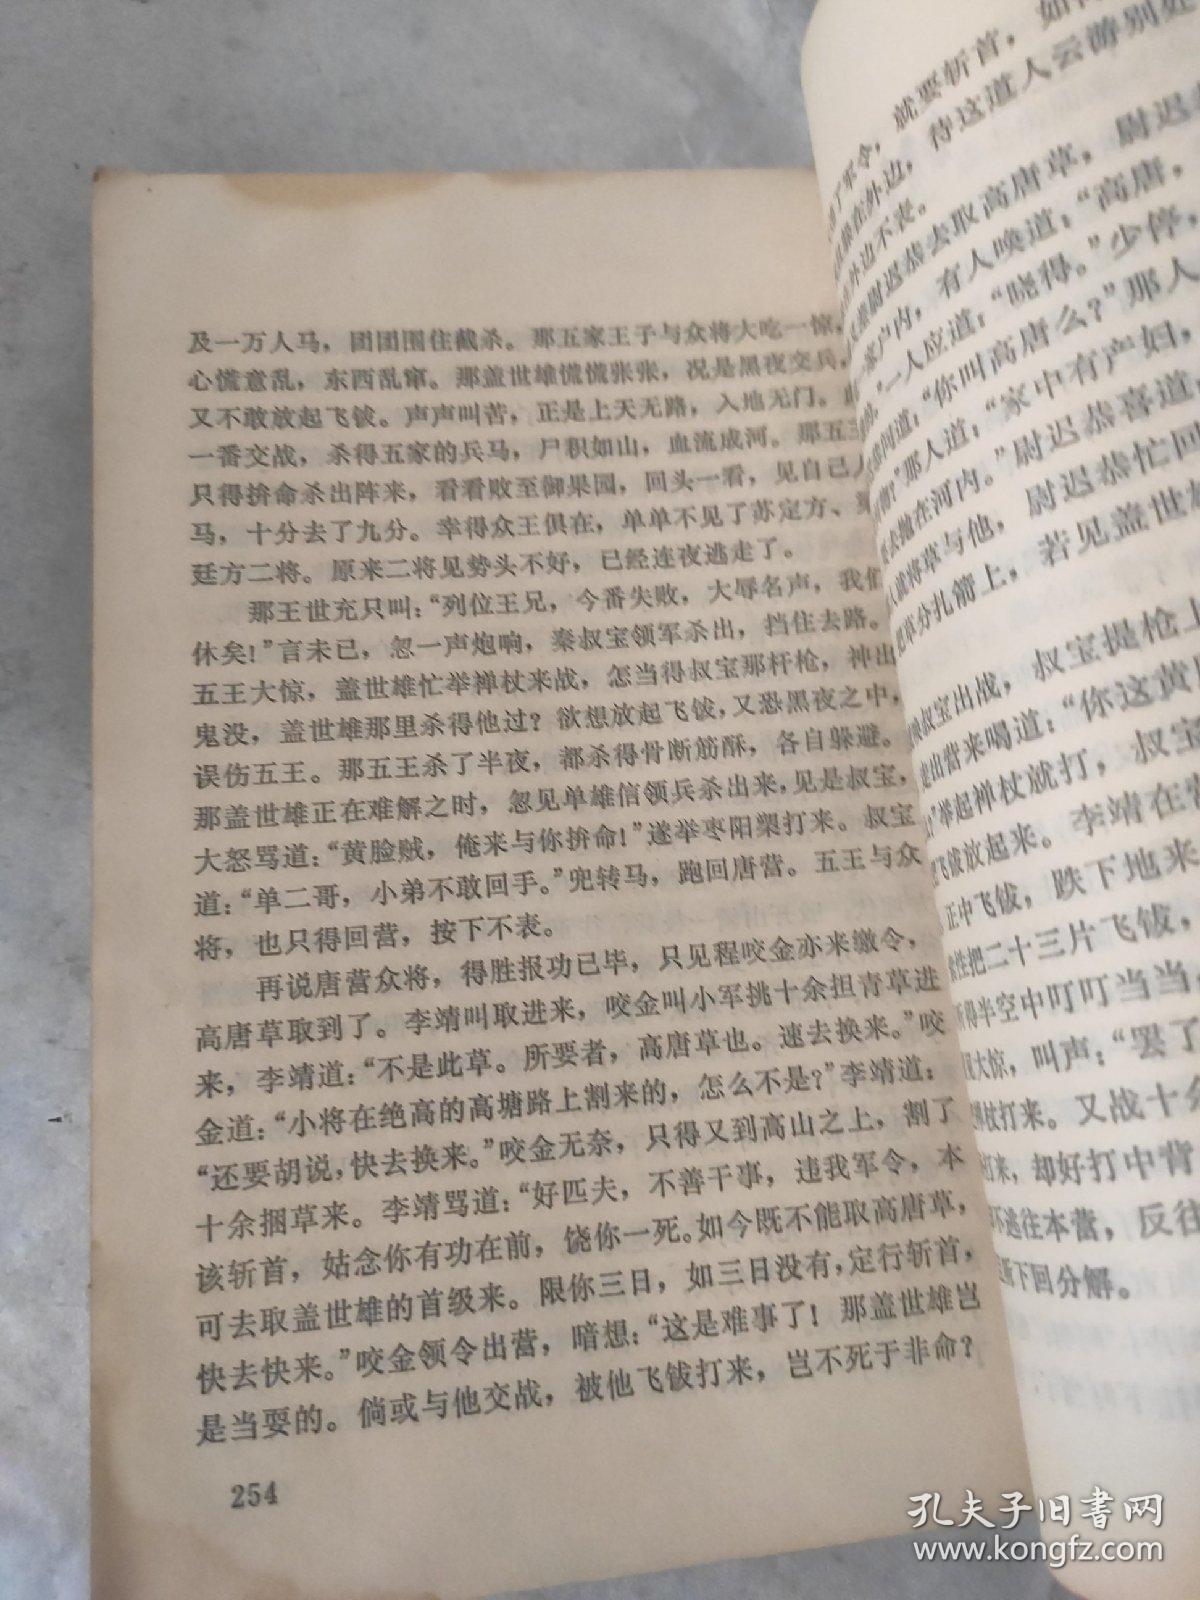 及一万人马，团团围住截杀。那五家王子与众将大吃一惊，
心慌意乱，东西乱窜。那盖世雄慌慌张张，况是黑夜交兵，
又不敢放起飞钹。声声叫苦，正是上天无路，入地无门。
一番交战，杀得五家的兵马，尸积如山，血流成河。那五
只得拚命杀出阵来，看看败至御果园，回头一看，见自己
马，十分去了九分。幸得众王俱在，单单不见了苏定方、
廷方二将。原来二将见势头不好，已经连夜逃走了。
那王世充只叫：“列位王兄，今番失败，大辱名声，我们
休矣！”言未已，忽一声炮响，秦叔宝领军杀出，挡住去路。
五王大惊，盖世雄忙举禅杖来战，怎当得叔宝那杆枪，神出
鬼没，盖世雄那里杀得他过？欲想放起飞钹，又恐黑夜之中，
误伤五王。那五王杀了半夜，都杀得骨断筋酥，各自躲避。
那盖世雄正在难解之时，忽见单雄信领兵杀出来，见是叔宝，
大怒骂道：“黄脸贼，俺来与你拚命！”遂举枣阳槊打来。叔宝
道：“单二哥，小弟不敢回手。”兜转马，跑回唐营。五王与众
将，也只得回营，按下不表。
再说唐营众将，得胜报功已毕，只见程咬金亦来缴令，
高唐草取到了。李靖叫取进来，咬金叫小军挑十余担青草进
来，李靖道：“不是此草。所要者，高唐草也。速去换来。”咬
金道：“小将在绝高的高塘路上割来的，怎么不是？”李靖道：
“还要胡说，快去换来。”咬金无奈，只得又到高山之上，割了
十余捆草来。李靖骂道：“好匹夫，不善干事，违我军令，本
该斩首，姑念你有功在前，饶你一死。如今既不能取高唐草，
可去取盖世雄的首级来。限你三日，如三日没有，定行斩首，
快去快来。”咬金领令出营，暗想：“这是难事了！那盖世雄岂
是当耍的。倘或与他交战，被他飞钹打来，岂不死于非命？
254
了军令，就要斩首，如
在外边，待这道人云游别处
外边不表。
尉迟恭去取高唐草，尉迟
一家户内，有人唤道：“高唐，
一人应道：“晓得。”少停，
问道：“你叫高唐么？”那人
那人道：“家中有产妇，
去抛在河内。”尉迟恭喜道
将草与他，尉迟恭忙回
草分扎箭上，若见盖世
叔宝出战，叔宝提枪上
出营来喝道：“你这黄
举起禅杖就打，叔宝
飞钹放起来。李靖在
正中飞钹，跌下地来
性把二十三片飞钹，
听得半空中叮叮当当
大惊，叫声：“罢了
杖打来。又战十
打来，却好打中背
不逃往本营，反往
下回分解。
孔夫子旧书网
www.kongfz.com